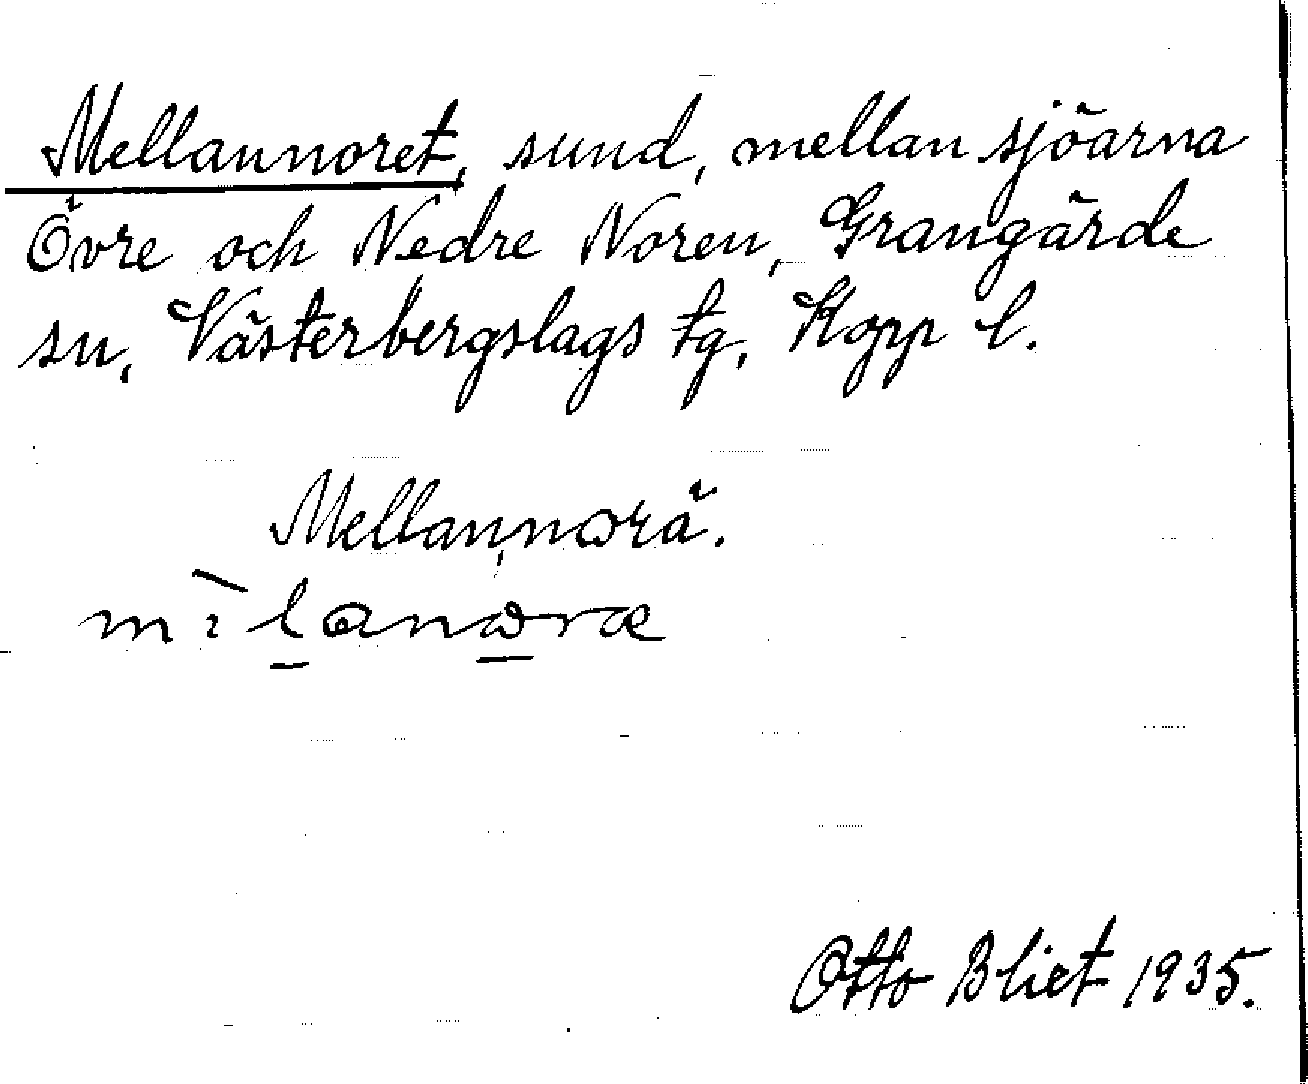 Mellannoret, sund, mellan sjöarna
Övre och Nedre Noren, Grangärde
sn, Västerbergslags tg, Kopp l.
Mellannorä.
Otto Bliet 1935.